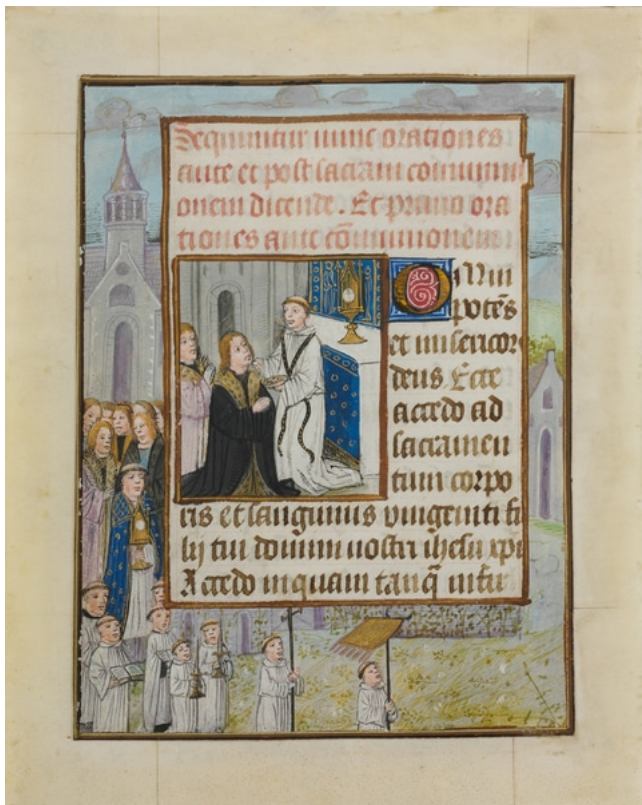 Sequuntur nunc orationes
ante et post sacram communi
onem dicende. Et primo ora
tiones ante cōmunionem
Omni
potēs
et misericor
deus. Ecce
accedo ad
sacramen
tum corpo
ris et sanguinis unigeniti fi
lij tui domini nostri ihesu xpi
Accedo inquam tanq̄ infir